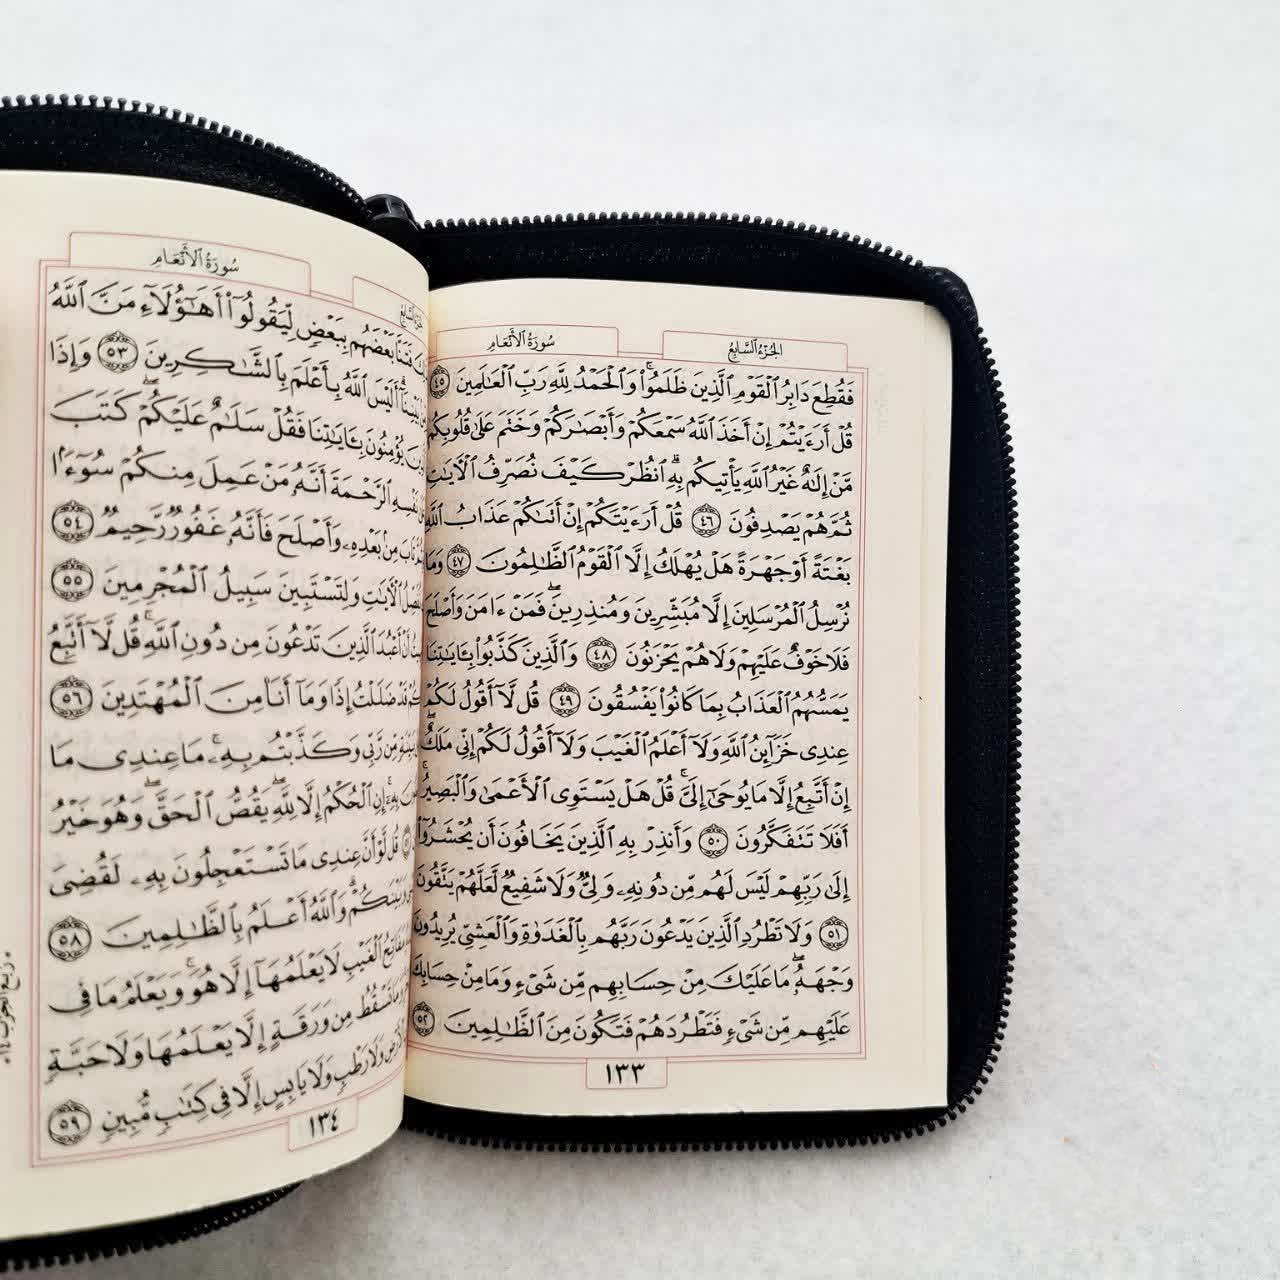 الجزء السابع
سورة الأنعام
فَقُطِعَ دَابِرُ ٱلْقَوْمِ ٱلَّذِينَ ظَلَمُوا۟ ۚ وَٱلْحَمْدُ لِلَّهِ رَبِّ ٱلْعَٰلَمِينَ ٤٥
قُلْ أَرَءَيْتُمْ إِنْ أَخَذَ ٱللَّهُ سَمْعَكُمْ وَأَبْصَٰرَكُمْ وَخَتَمَ عَلَىٰ قُلُوبِكُم
مَّنْ إِلَٰهٌ غَيْرُ ٱللَّهِ يَأْتِيكُم بِهِ ۗ ٱنظُرْ كَيْفَ نُصَرِّفُ ٱلْءَايَٰتِ
ثُمَّ هُمْ يَصْدِفُونَ ٤٦ قُلْ أَرَءَيْتَكُمْ إِنْ أَتَىٰكُمْ عَذَابُ ٱللَّهِ
بَغْتَةً أَوْ جَهْرَةً هَلْ يُهْلَكُ إِلَّا ٱلْقَوْمُ ٱلظَّٰلِمُونَ ٤٧ وَمَا
نُرْسِلُ ٱلْمُرْسَلِينَ إِلَّا مُبَشِّرِينَ وَمُنذِرِينَ ۖ فَمَنْ ءَامَنَ وَأَصْلَحَ
فَلَا خَوْفٌ عَلَيْهِمْ وَلَا هُمْ يَحْزَنُونَ ٤٨ وَٱلَّذِينَ كَذَّبُوا۟ بِـَٔايَٰتِنَا
يَمَسُّهُمُ ٱلْعَذَابُ بِمَا كَانُوا۟ يَفْسُقُونَ ٤٩ قُل لَّآ أَقُولُ لَكُمْ
عِندِى خَزَآئِنُ ٱللَّهِ وَلَآ أَعْلَمُ ٱلْغَيْبَ وَلَآ أَقُولُ لَكُمْ إِنِّى مَلَكٌ ۖ
إِنْ أَتَّبِعُ إِلَّا مَا يُوحَىٰٓ إِلَىَّ ۚ قُلْ هَلْ يَسْتَوِى ٱلْأَعْمَىٰ وَٱلْبَصِيرُ ۚ
أَفَلَا تَتَفَكَّرُونَ ٥٠ وَأَنذِرْ بِهِ ٱلَّذِينَ يَخَافُونَ أَن يُحْشَرُوٓا۟
إِلَىٰ رَبِّهِمْ لَيْسَ لَهُم مِّن دُونِهِۦ وَلِىٌّ وَلَا شَفِيعٌ لَّعَلَّهُمْ يَتَّقُونَ
٥١ وَلَا تَطْرُدِ ٱلَّذِينَ يَدْعُونَ رَبَّهُم بِٱلْغَدَوٰةِ وَٱلْعَشِىِّ يُرِيدُونَ
وَجْهَهُۥ ۖ مَا عَلَيْكَ مِنْ حِسَابِهِم مِّن شَىْءٍ وَمَا مِنْ حِسَابِكَ
عَلَيْهِم مِّن شَىْءٍ فَتَطْرُدَهُمْ فَتَكُونَ مِنَ ٱلظَّٰلِمِينَ ٥٢
١٣٣
سورة الأنعام
فَتَنَّا بَعْضَهُم بِبَعْضٍ لِّيَقُولُوٓا۟ أَهَٰٓؤُلَآءِ مَنَّ ٱللَّهُ
أَلَيْسَ ٱللَّهُ بِأَعْلَمَ بِٱلشَّٰكِرِينَ ٥٣ وَإِذَا
يُؤْمِنُونَ بِـَٔايَٰتِنَا فَقُلْ سَلَٰمٌ عَلَيْكُمْ ۖ كَتَبَ
نَفْسِهِ ٱلرَّحْمَةَ ۖ أَنَّهُۥ مَنْ عَمِلَ مِنكُمْ سُوٓءًۢا
مِنۢ بَعْدِهِۦ وَأَصْلَحَ فَأَنَّهُۥ غَفُورٌ رَّحِيمٌ ٥٤
ٱلْءَايَٰتِ وَلِتَسْتَبِينَ سَبِيلُ ٱلْمُجْرِمِينَ ٥٥
أَنْ أَعْبُدَ ٱلَّذِينَ تَدْعُونَ مِن دُونِ ٱللَّهِ ۚ قُل لَّآ أَتَّبِعُ
ضَلَلْتُ إِذًا وَمَآ أَنَا۠ مِنَ ٱلْمُهْتَدِينَ ٥٦
مِّن رَّبِّى وَكَذَّبْتُم بِهِۦ ۚ مَا عِندِى مَا
إِنِ ٱلْحُكْمُ إِلَّا لِلَّهِ ۖ يَقُصُّ ٱلْحَقَّ ۖ وَهُوَ خَيْرُ
قُل لَّوْ أَنَّ عِندِى مَا تَسْتَعْجِلُونَ بِهِۦ لَقُضِىَ
وَبَيْنَكُمْ ۗ وَٱللَّهُ أَعْلَمُ بِٱلظَّٰلِمِينَ ٥٨
مَفَاتِحُ ٱلْغَيْبِ لَا يَعْلَمُهَآ إِلَّا هُوَ ۚ وَيَعْلَمُ مَا فِى
وَمَا تَسْقُطُ مِن وَرَقَةٍ إِلَّا يَعْلَمُهَا وَلَا حَبَّةٍ
وَلَا رَطْبٍ وَلَا يَابِسٍ إِلَّا فِى كِتَٰبٍ مُّبِينٍ ٥٩
١٣٤